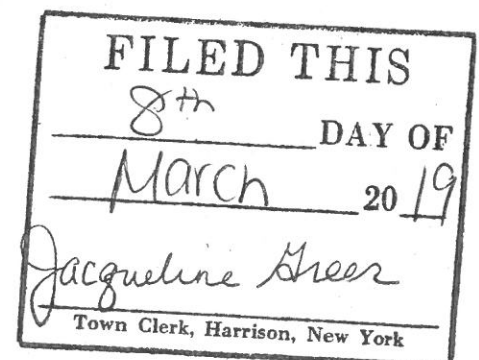 FILED THIS
8th DAY OF
March 20 19
Jacqueline Greer
Town Clerk, Harrison, New York